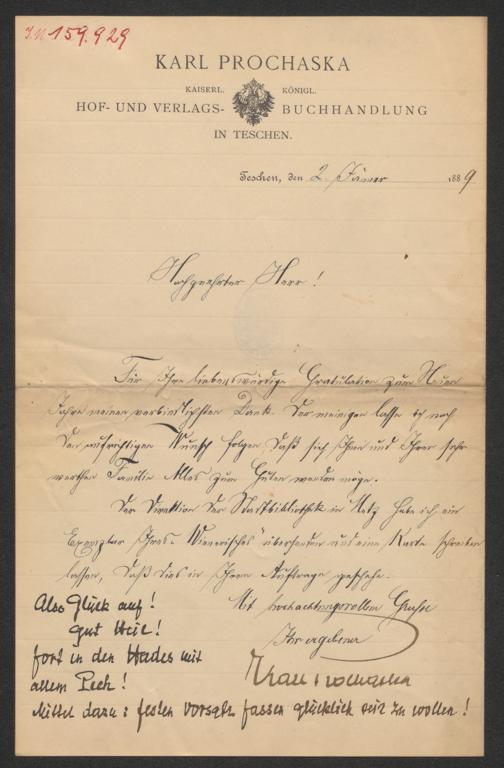 J.N 159.929
KARL PROCHASKA
KAISERL. KÖNIGL.
HOF- UND VERLAGS- BUCHHANDLUNG
IN TESCHEN.
Teschen, den 2. Jänner 1889
Hochgeehrter Herr!
Für Ihre liebenswürdige Gratulation zum Neuen
Jahre meinen verbindlichsten Dank. Der meinigen lasse ich noch
den aufrichtigen Wunsch folgen, daß sich Ihnen und Ihrer sehr
werthen Familie Alles zum Guten wenden möge.
Der Direktion der Stadtbibliothek in Metz habe ich ein
Exemplar Ihres „Wienerisches" übersenden und eine Karte schreiben
lassen, daß dies in Ihrem Auftrage geschehe.
Mit hochachtungsvollem Gruße
Ihr ergebener
Karl Prochaska
Also Glück auf!
gut Heil!
fort in den Hades mit
allem Pech!
Mittel dazu: festen Vorsatz fassen glücklich sein zu wollen!